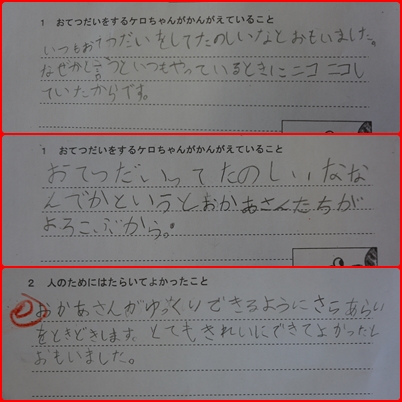 1 おてつだいをするケロちゃんがかんがえていること
いつもおてつだいをしてたのしいなとおもいました。
なぜかと言うといつもやっているときにニコニコし
ていたからです。
1 おてつだいをするケロちゃんがかんがえていること
おてつだいってたのしいな な
んでかというとおかあさんたちが
よろこぶから。
2 人のためにはたらいてよかったこと
おかあさんがゆっくりできるようにさらあらい
をときどきします。とてもきれいにできてよかったと
おもいました。